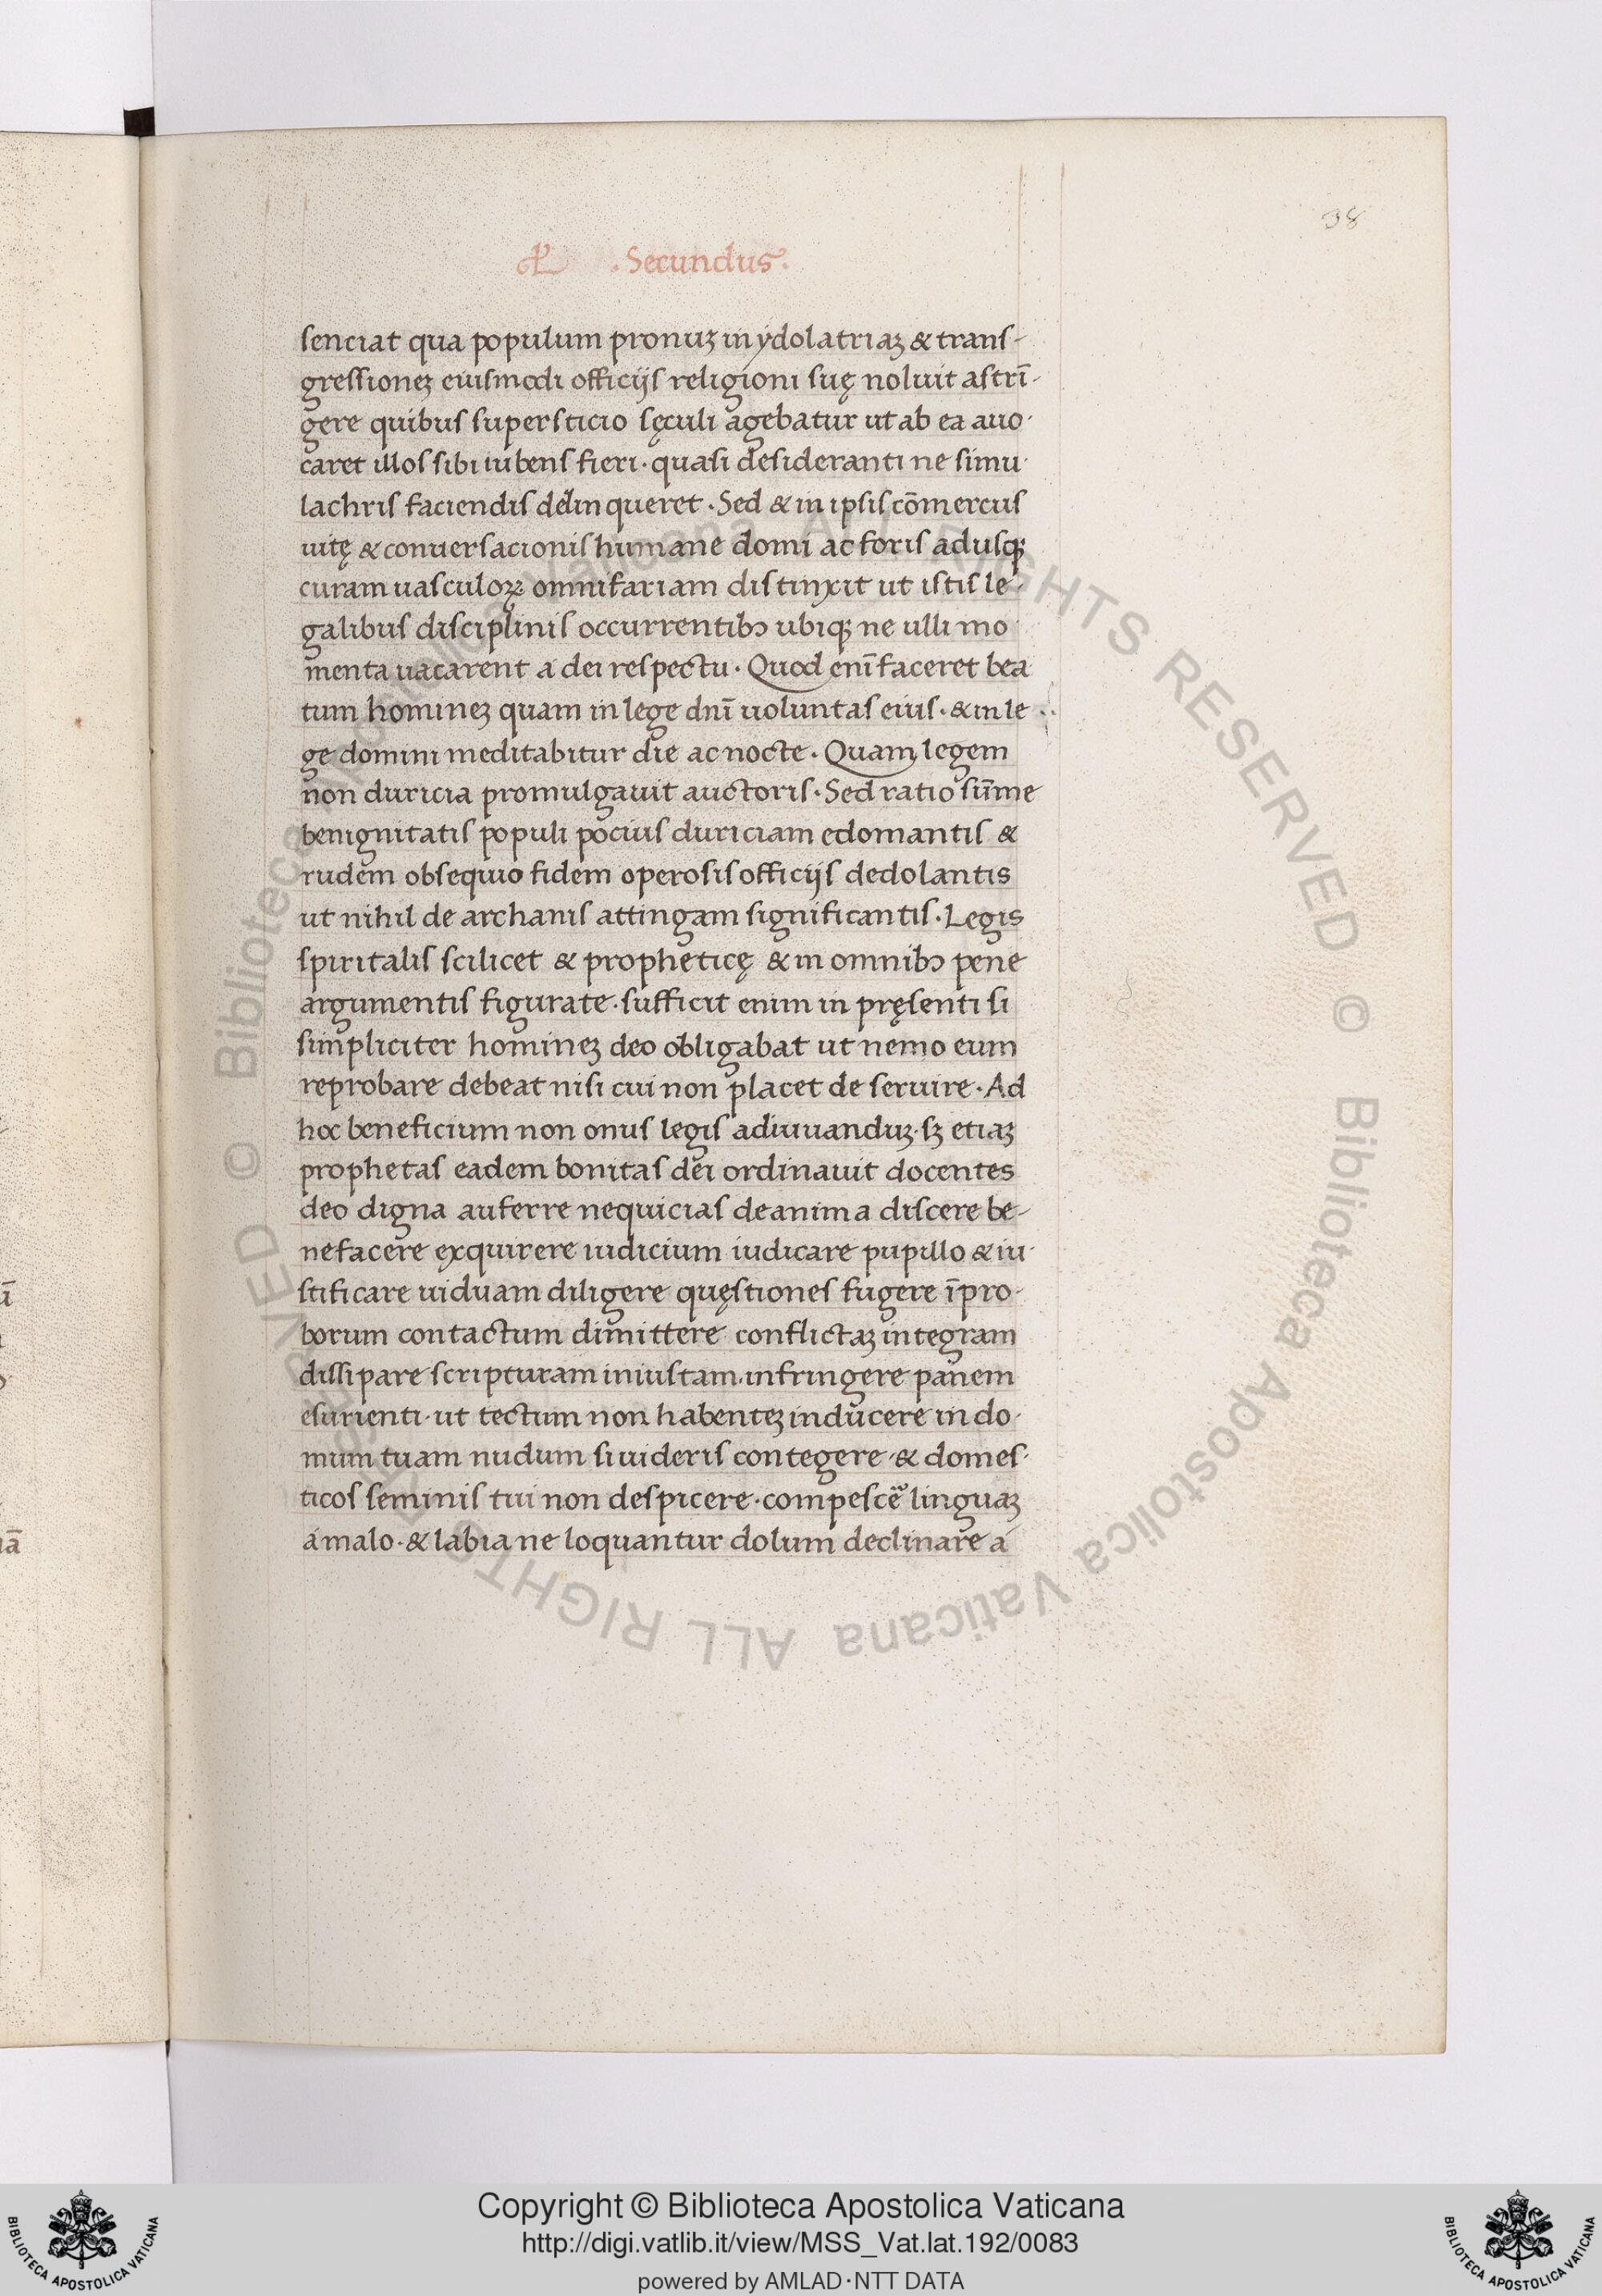 38
. Secundus.
senciat qua populum pronuꝫ in ydolatriaꝫ & trans-
gressioneꝫ eiusmodi officijs religioni suę noluit astrī-
gere quibus supersticio sęculi agebatur ut ab ea auo-
caret illos sibi iubens fieri · quasi desideranti ne simu-
lachris faciendis delinqueret · Sed & in ipsis cōmerciis
uitę & conuersacionis humane domi ac foris adusqꝫ
curam uasculoꝝ omnifariam distinxit ut istis le-
galibus disciplinis occurrentibꝫ ubiqꝫ ne ulli mo-
menta uacarent a dei respectu · Quod enī faceret bea
tum homineꝫ quam in lege dnī uoluntas eius · & in le
ge domini meditabitur die ac nocte · Quam legem
non duricia promulgauit auctoris · Sed ratio sūme
benignitatis populi pocius duriciam edomantis &
rudem obsequio fidem operosis officijs dedolantis
ut nihil de archanis attingam significantis · Legis
spiritalis scilicet & propheticę & in omnibꝫ pene
argumentis figurate · sufficit enim in pręsenti si
simpliciter homineꝫ deo obligabat ut nemo eum
reprobare debeat nisi cui non placet de seruire · Ad
hoc beneficium non onus legis adiuuanduꝫ · sꝫ etiaꝫ
prophetas eadem bonitas dei ordinauit docentes
deo digna auferre nequicias de anima discere be-
nefacere exquirere iudicium iudicare pupillo & iu-
stificare uiduam diligere quęstiones fugere īpro-
borum contactum dimittere conflictaꝫ integram
dissipare scripturam iniustam · infringere panem
esurienti · ut tectum non habenteꝫ inducere in do-
mum tuam nudum si uideris contegere · & domes-
ticos seminis tui non despicere · compescē linguaꝫ
a malo · & labia ne loquantur dolum declinare a
Copyright © Biblioteca Apostolica Vaticana
http://digi.vatlib.it/view/MSS_Vat.lat.192/0083
powered by AMLAD·NTT DATA
BIBLIOTECA APOSTOLICA VATICANA
BIBLIOTECA APOSTOLICA VATICANA
© Biblioteca Apostolica Vaticana ALL RIGHTS RESERVED © Biblioteca Apostolica Vaticana ALL RIGHTS RESERVED